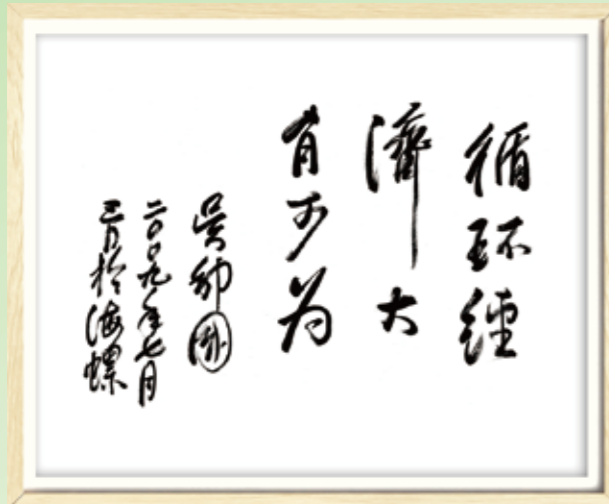 循环经
濟大
有可为
吴邦国
二〇〇九年七月
三日於海螺